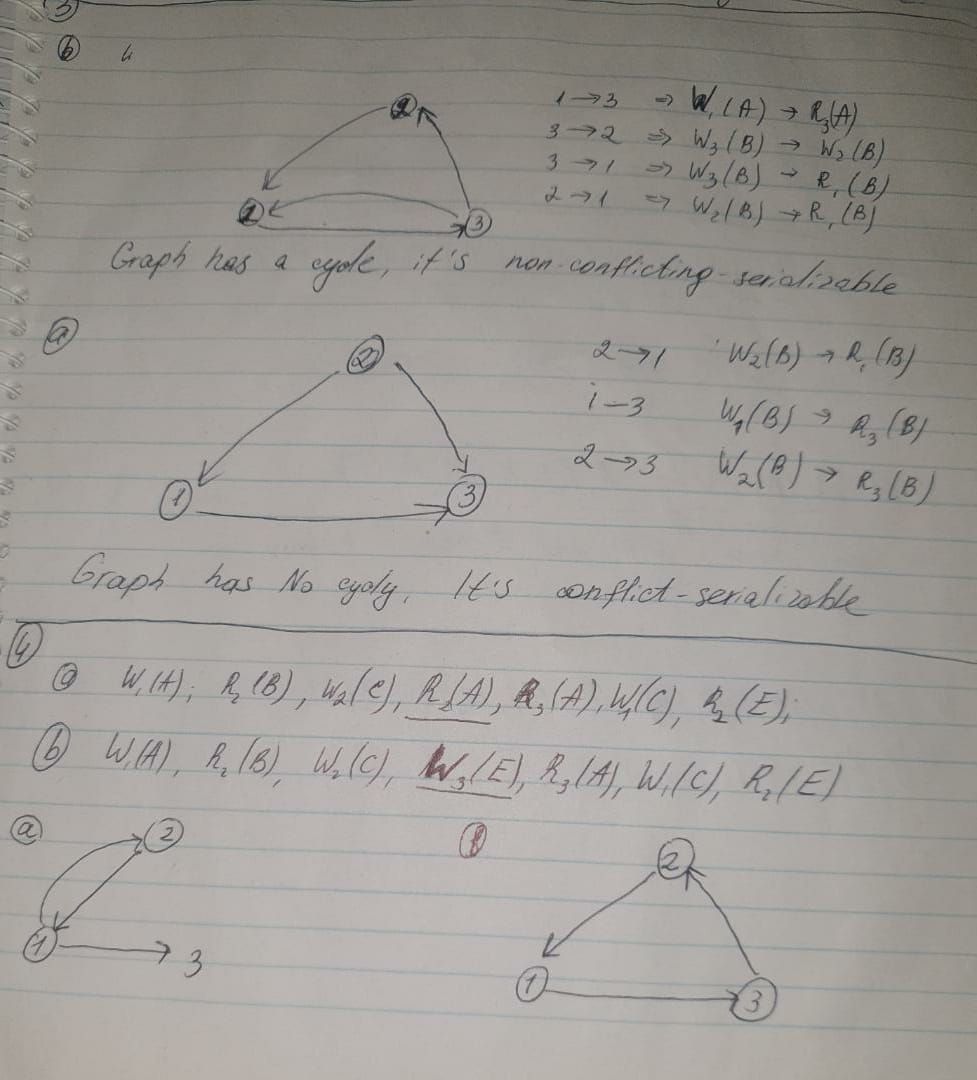 ③
ⓑ
2
1 3
1→3 ⇒ W₁(A) → R₃(A)
3→2 ⇒ W₃(B) → W₂(B)
3→1 ⇒ W₃(B) → R₁(B)
2→1 ⇒ W₂(B) → R₁(B)
Graph has a cycle, it's non-conflicting-serializable
ⓐ
2
1 3
2→1 W₂(B) → R₁(B)
1–3 W₁(B) → R₃(B)
2→3 W₂(B) → R₃(B)
Graph has No cycly, It's conflict-serializable
④
ⓐ W₁(A); R₂(B), W₂(C), R₂(A), R₃(A), W₁(C), R₂(E);
ⓑ W₁(A), R₂(B), W₂(C), W₃(E), R₃(A), W₁(C), R₂(E)
ⓐ
2
1 3
ⓑ
2
1 3